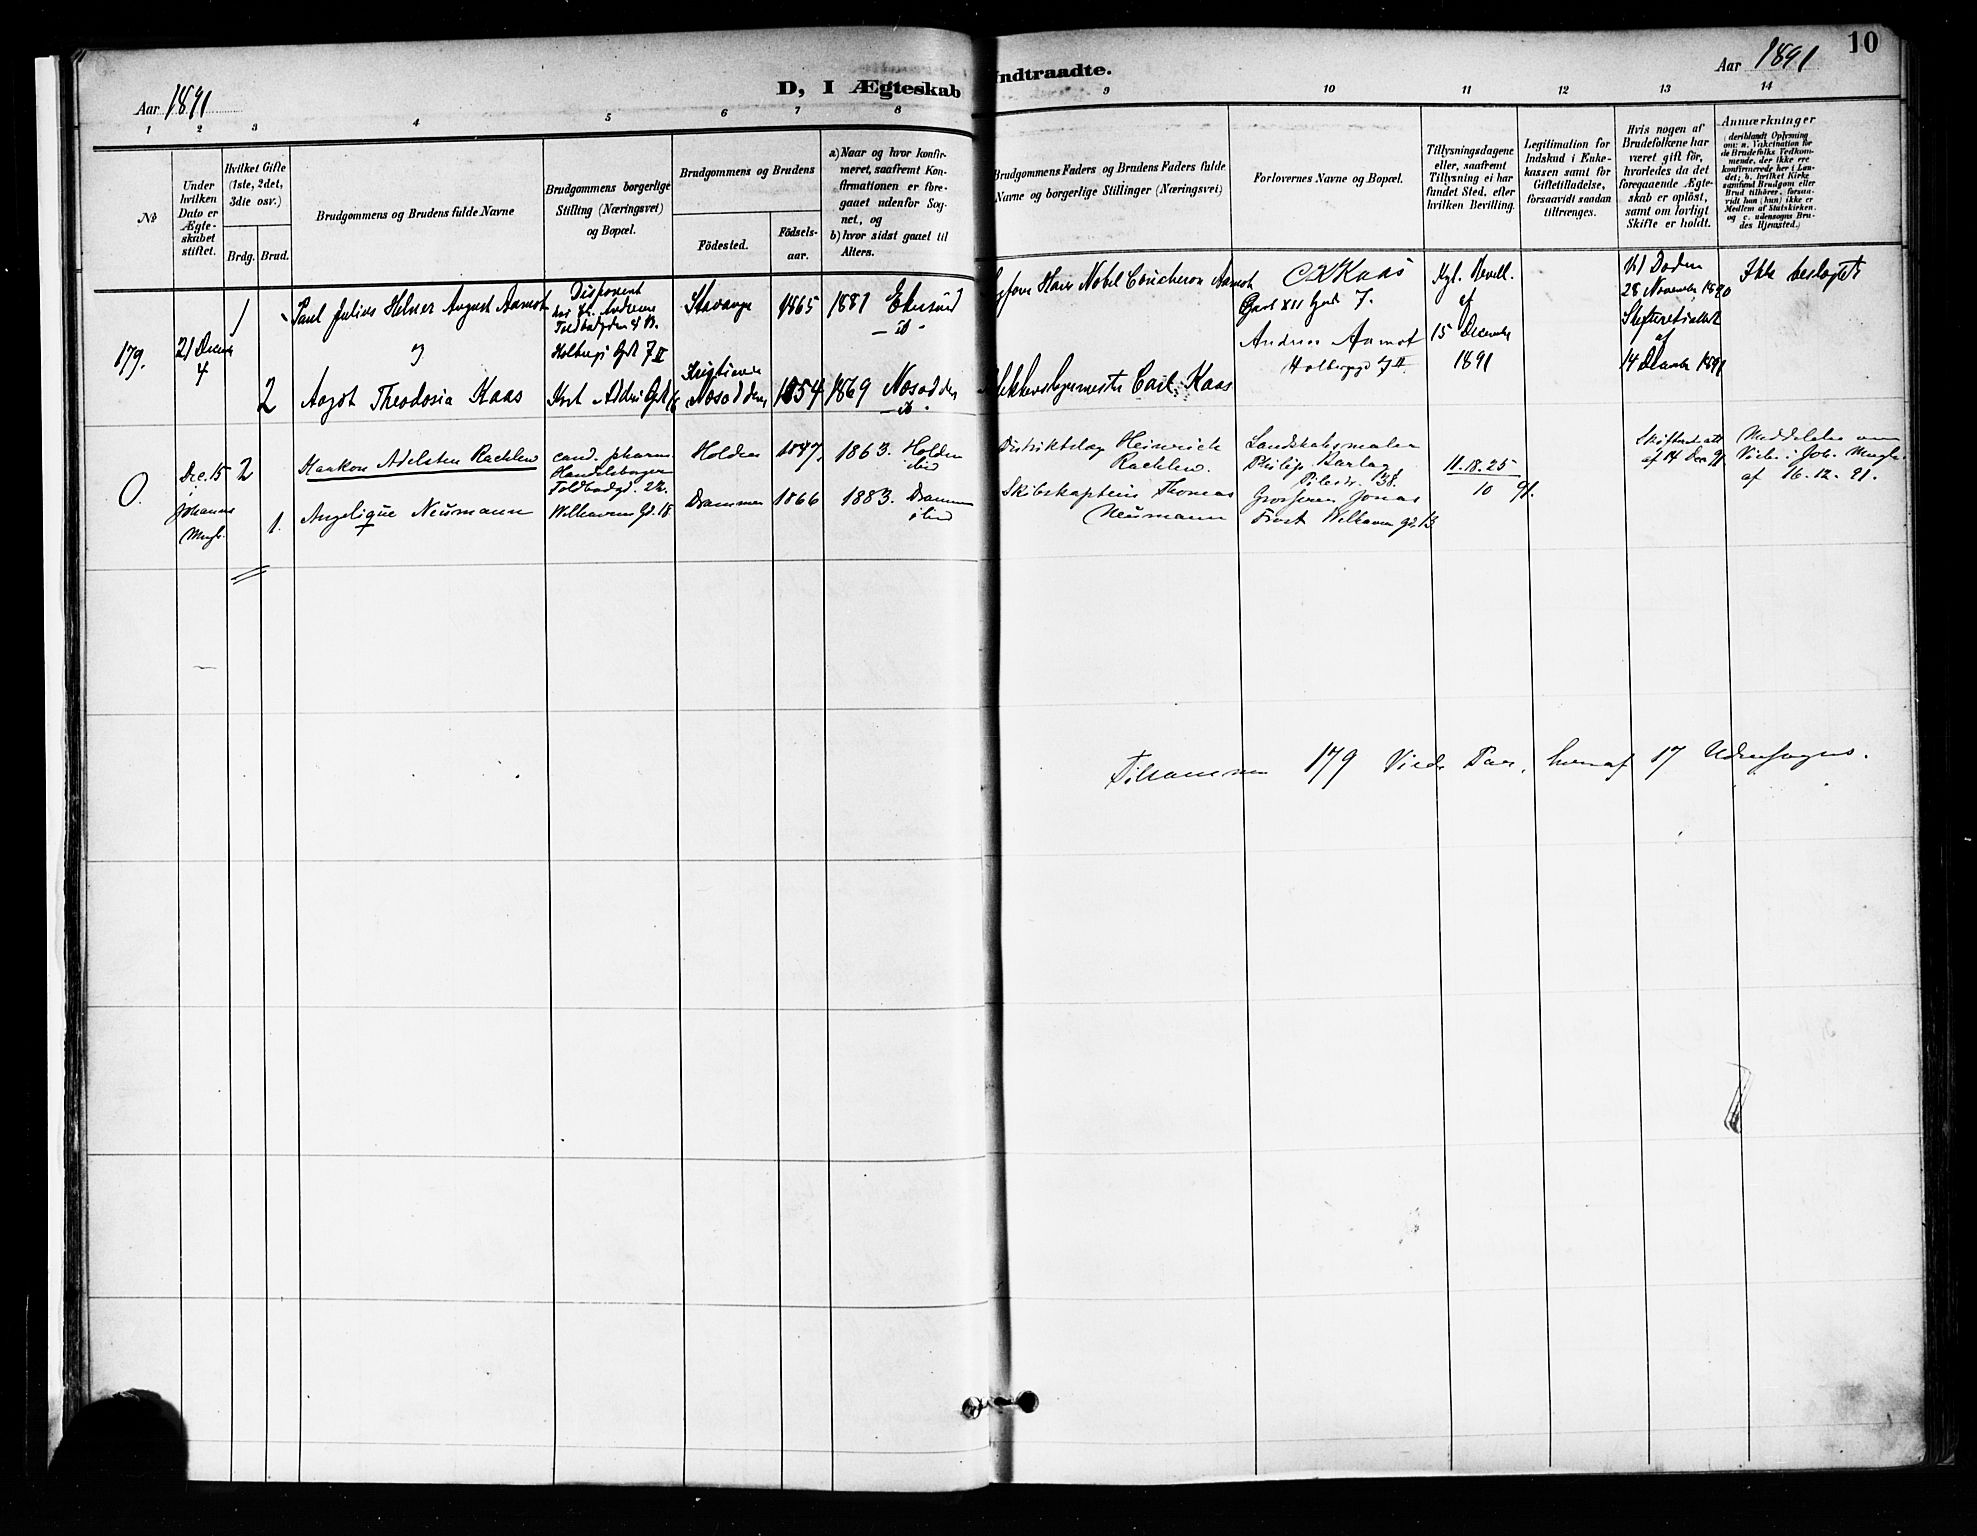 10
Aar 1891
Aar 1891
D, I Ægteskab Indtraadte.
1 2 3 4 5 6 7 8 9 10 11 12 13 14
№
Under hvilken Dato er Ægteskabet stiftet.
Hvilket Gifte (1ste, 2det, 3die osv.)
Brdg. Brud.
Brudgommens og Brudens fulde Navne
Brudgommens borgerlige Stilling (Næringsvei) og Bopæl.
Brudgommens og Brudens
Födested.
Födsels-aar.
a) Naar og hvor konfirmeret, saafremt Konfirmationen er foregaaet udenfor Sognet, og
b) hvor sidst gaaet til Alters.
Brudgommens Faders og Brudens Faders fulde Navne og borgerlige Stillinger (Næringsvei)
Forlovernes Navne og Bopæl.
Tillysningsdagene eller, saafremt Tillysning ei har fundet Sted, efter hvilken Bevilling.
Legitimation for Indskud i Enkekassen samt for Giftetilladelse, forsaavidt saadan tiltrænges.
Hvis nogen af Brudefolkene har været gift før, hvorledes da det foregaaende Ægteskab er oplöst, samt om lovligt Skifte er holdt.
Anmærkninger
(deriblandt Oplysning om: a. Vakcination for de Brudefolks Vedkommende, der ikke ere konfirmerede her i Landet; b. hvilket Kirkesamfund Brudgom eller Brud tilhörer, forsaavidt han (hun) ikke er Medlem af Statskirken, og c. udensogns Brudes Hjemsted.)
179.
21 Decemb
4
1
Paul Julius Helmer August Aamot
og
2
Aagot Theodosia Kaas
Disponent
Toldbodgden 4 B.
Holbergs Gd 7 II
Stavanger
1865
1881
Kristiania
Nesodden
1854
1869 Nesodden
Hans Nobel Coucheron Aamot
Carl Kaas
C K Kaas
Carl XII Gade 7.
Andreas Aamot
Holbergsgd 7 II.
Kgl. Bevill.
af
15 December
1891
Ved Döden
28 November 1890
Skifteretsattest
af
14 December 1891
Ikke beslægtede
0.
Dec. 15
i
Johannes
Mngh.
2
Haakon Adelsten Rachlew
1.
Angelique Neumann
cand. pharm.
Handelsborger
Toldbodgd. 22.
Welhavens Gd. 18.
Holden
1847.
1863. Holden
ibid
Drammen
1866
1883. Drammen
ibid
Distriktslæge Heinrich
Rachlew.
Skibskaptein Thomas
Neumann
Landskabsmaler
Philip Barlag
Pilestr. 138.
Grosserer Jonas
Frost Welhavens gd. 13
11. 18. 25
10 91.
Skifteretsatt
af 14 Dec. 91
Meddelelse om
Vielse i Joh. Mngh.
af 16. 12. 91.
Tilsammen 179 Viede Par, hvoraf 17 Udensogns.